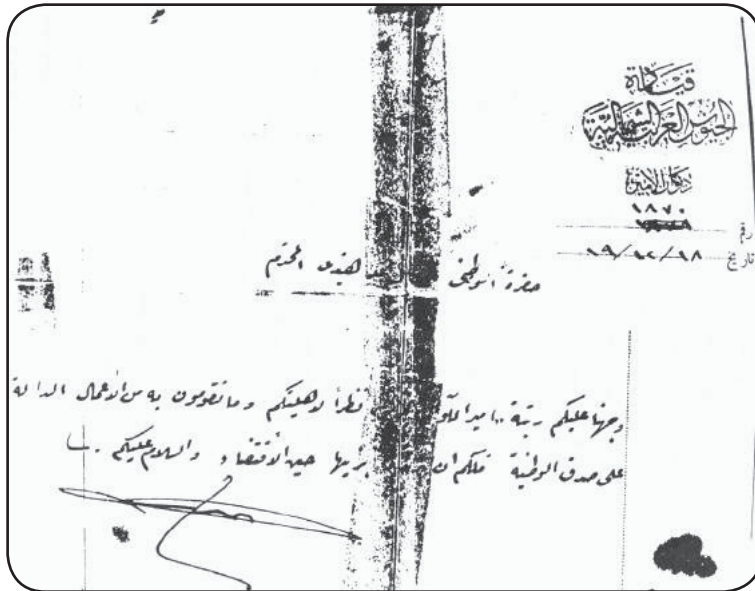 قيادة
الجيوش العربية الشمالية
ديوان الامير
رقم ١٨٧٠
تاريخ ١٩/١٢/١٨
حضرة الوطني المحترم
وجهنا عليكم رتبة نظراً لاهليتكم وما تقومون به من الأعمال الدالة
على صدق الوطنية فلكم ان حين الاقتضاء والسلام عليكم